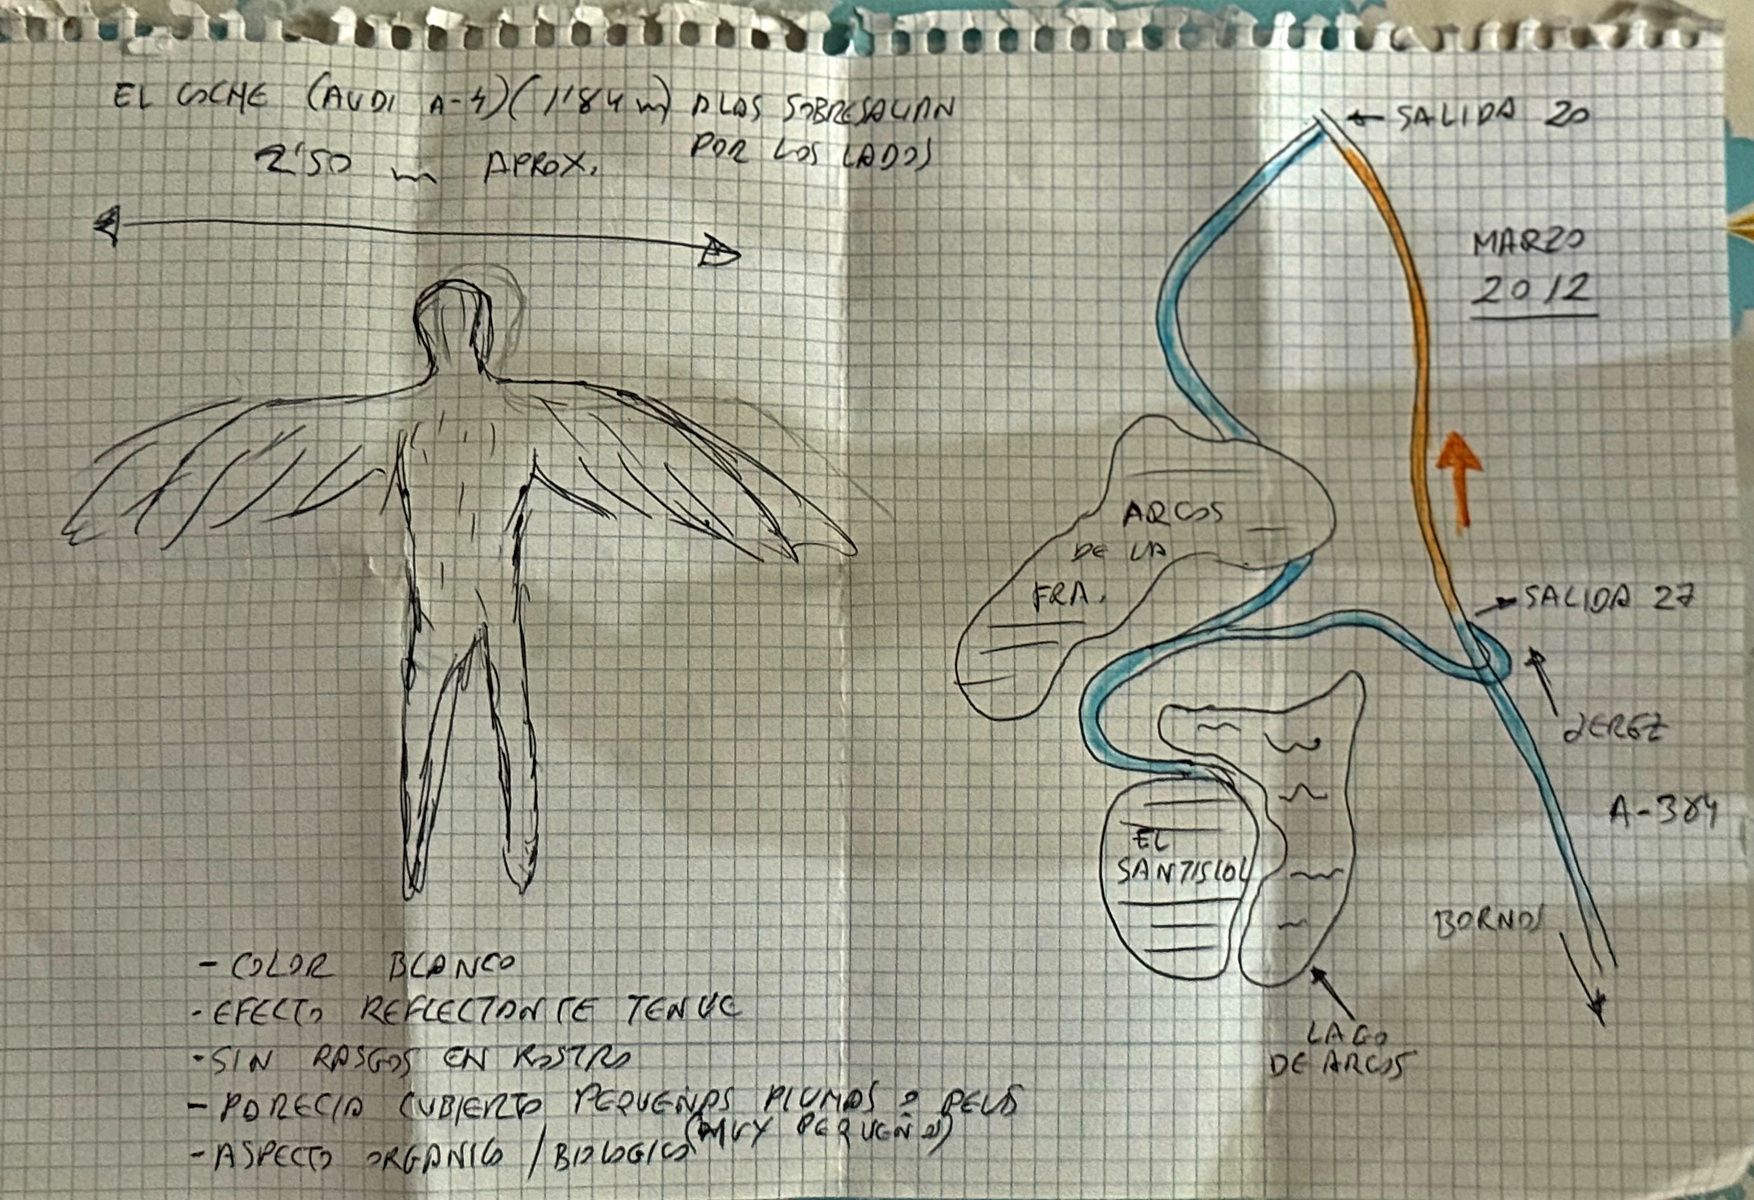 EL COCHE (AUDI A-4) (1'84 m) ALAS SOBRESALIAN
POR LOS LADOS
2'50 m APROX.
- COLOR BLANCO
- EFECTO REFLECTANTE TENUE
- SIN RASGOS EN ROSTRO
- PARECIA CUBIERTO PEQUEÑAS PLUMAS O PELO
(MUY PEQUEÑO)
- ASPECTO ORGANICO / BIOLOGICO
← SALIDA 20
MARZO
2012
ARCOS
DE LA
FRA.
SALIDA 27
JEREZ
A-384
EL
SANTISCAL
BORNOS
LAGO
DE ARCOS